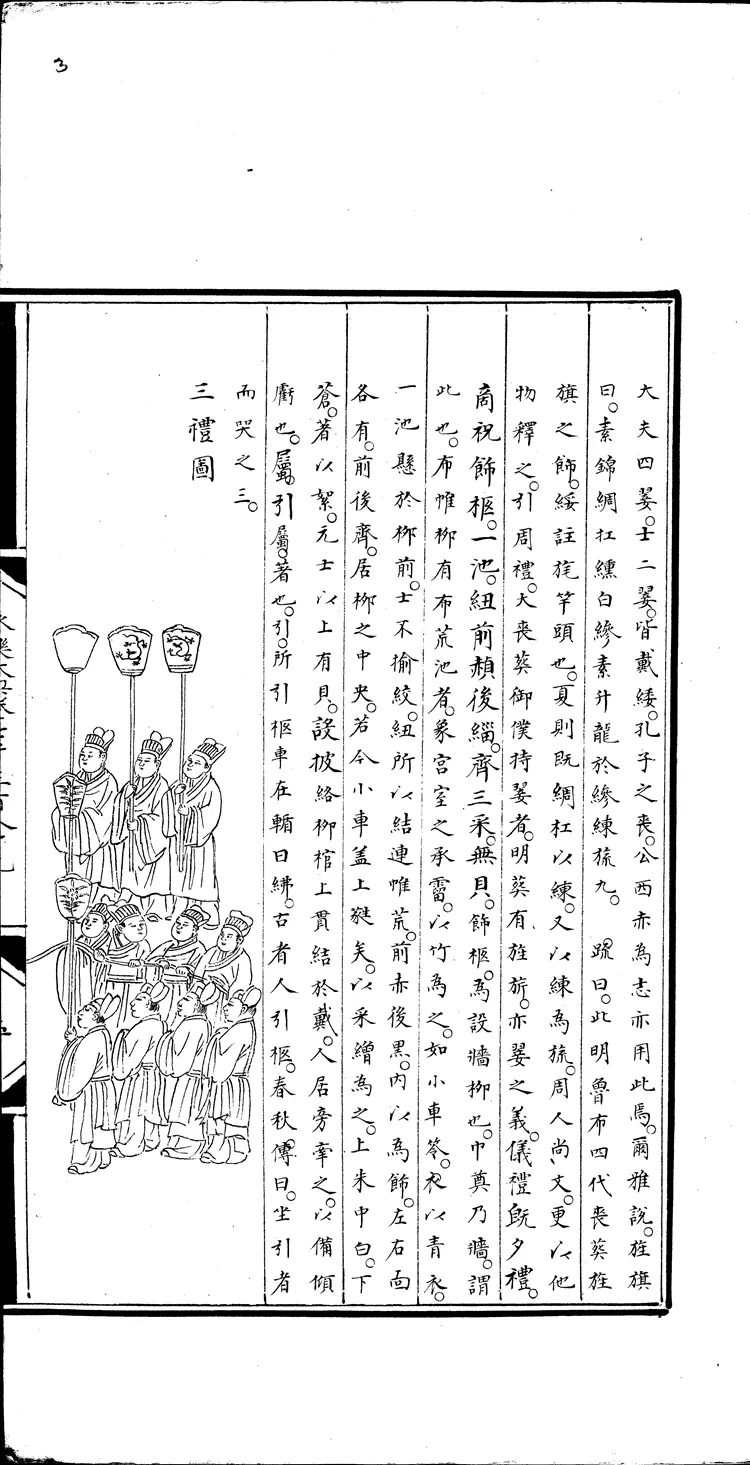 3
大夫四翣。士二翣。皆戴綏。孔子之喪。公西赤為志亦用此焉。爾雅說。旌旗
曰。素錦綢杠纁白縿素升龍於縿練旒九。 疏曰。此明魯布四代喪葬旌
旗之飾。綏註旄竿頭也。夏則既綢杠以練。又以練為旒。周人尚文。更以他
物釋之。引周禮。大喪葬御僕持翣者。明葬有旌旂。亦翣之義。儀禮既夕禮。
商祝飾柩。一池。紐前赬後緇。齊三采。無貝。飾柩。為設牆柳也。巾奠乃牆。謂
此也。布帷柳有布荒池者。象宮室之承霤。以竹為之。如小車笭。衣以青衣。
一池懸於柳前。士不揄絞。紐所以結連帷荒。前赤後黑。內以為飾。左右面
各有。前後齊。居柳之中央。若今小車盖上蕤矣。以采繒為之。上朱中白。下
蒼。著以絮。元士以上有貝。設披絡柳棺上貫結於戴。人居旁牽之。以備傾
虧也。屬引屬。著也。引。所引柩車在輴曰紼。古者人引柩。春秋傳曰。坐引者
而哭之三。
三禮圖